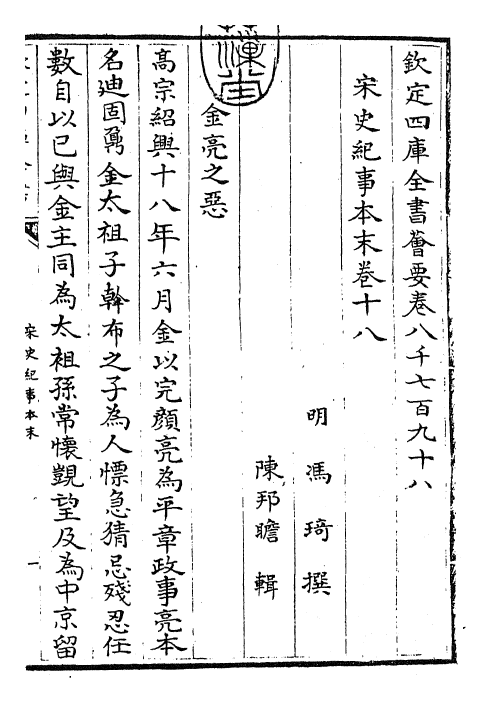 欽定四庫全書薈要卷八千七百九十八
宋史紀事本末卷十八
明 馮琦 撰
陳邦瞻 輯
金亮之惡
高宗紹興十八年六月金以完顔亮為平章政事亮本
名廸固鼐金太祖子斡布之子為人慓急猜忌殘忍任
數自以已與金主同為太祖孫常懷覬望及為中京留
宋史紀事本末
一